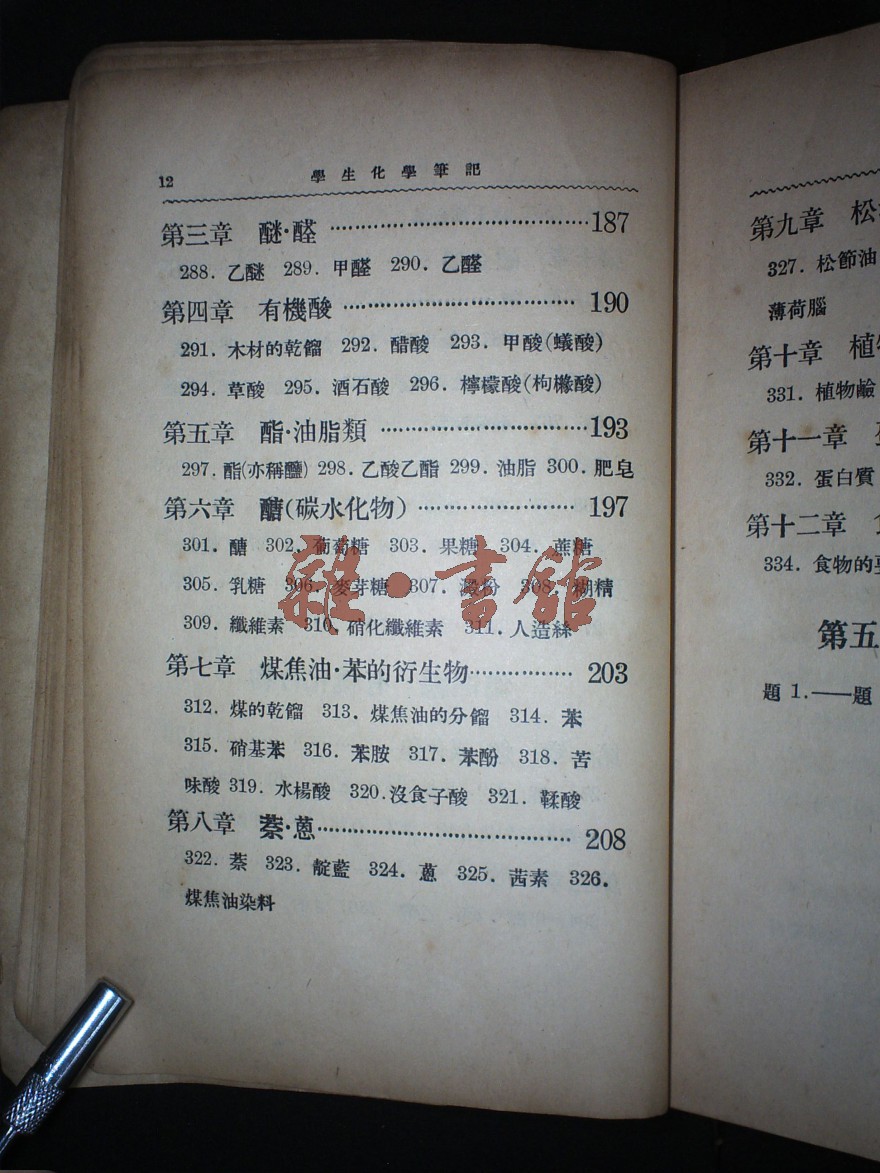 12 學生化學筆記
第三章 醚·醛 ……………………………… 187
288. 乙醚 289. 甲醛 290. 乙醛
第四章 有機酸 ……………………………… 190
291. 木材的乾餾 292. 醋酸 293. 甲酸(蟻酸)
294. 草酸 295. 酒石酸 296. 檸檬酸(枸櫞酸)
第五章 酯·油脂類 ……………………………… 193
297. 酯(亦稱鹽) 298. 乙酸乙酯 299. 油脂 300. 肥皂
第六章 醣(碳水化物) …………………… 197
301. 醣 302. 葡萄糖 303. 果糖 304. 蔗糖
305. 乳糖 306. 麥芽糖 307. 澱份 308. 糊精
309. 纖維素 310. 硝化纖維素 311. 人造絲
第七章 煤焦油·苯的衍生物 …………… 203
312. 煤的乾餾 313. 煤焦油的分餾 314. 苯
315. 硝基苯 316. 苯胺 317. 苯酚 318. 苦
味酸 319. 水楊酸 320. 沒食子酸 321. 鞣酸
第八章 萘·蒽 ……………………………… 208
322. 萘 323. 靛藍 324. 蒽 325. 茜素 326.
煤焦油染料
雜·書館
第九章 松
327. 松節油
薄荷腦
第十章 植
331. 植物鹼
第十一章
332. 蛋白質
第十二章
334. 食物的
第五
題 1.——題